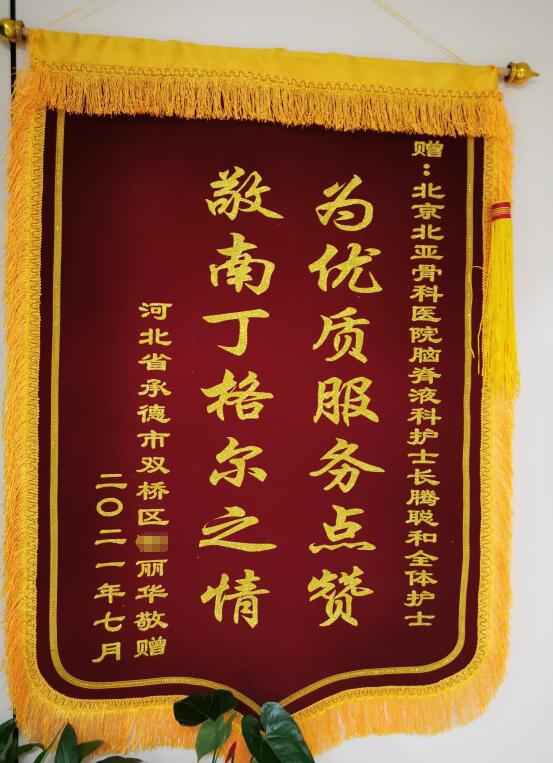 赠：北京北亚骨科医院脑脊液科护士长腾聪和全体护士
为优质服务点赞
敬南丁格尔之情
河北省承德市双桥区丽华敬赠
二〇二一年七月